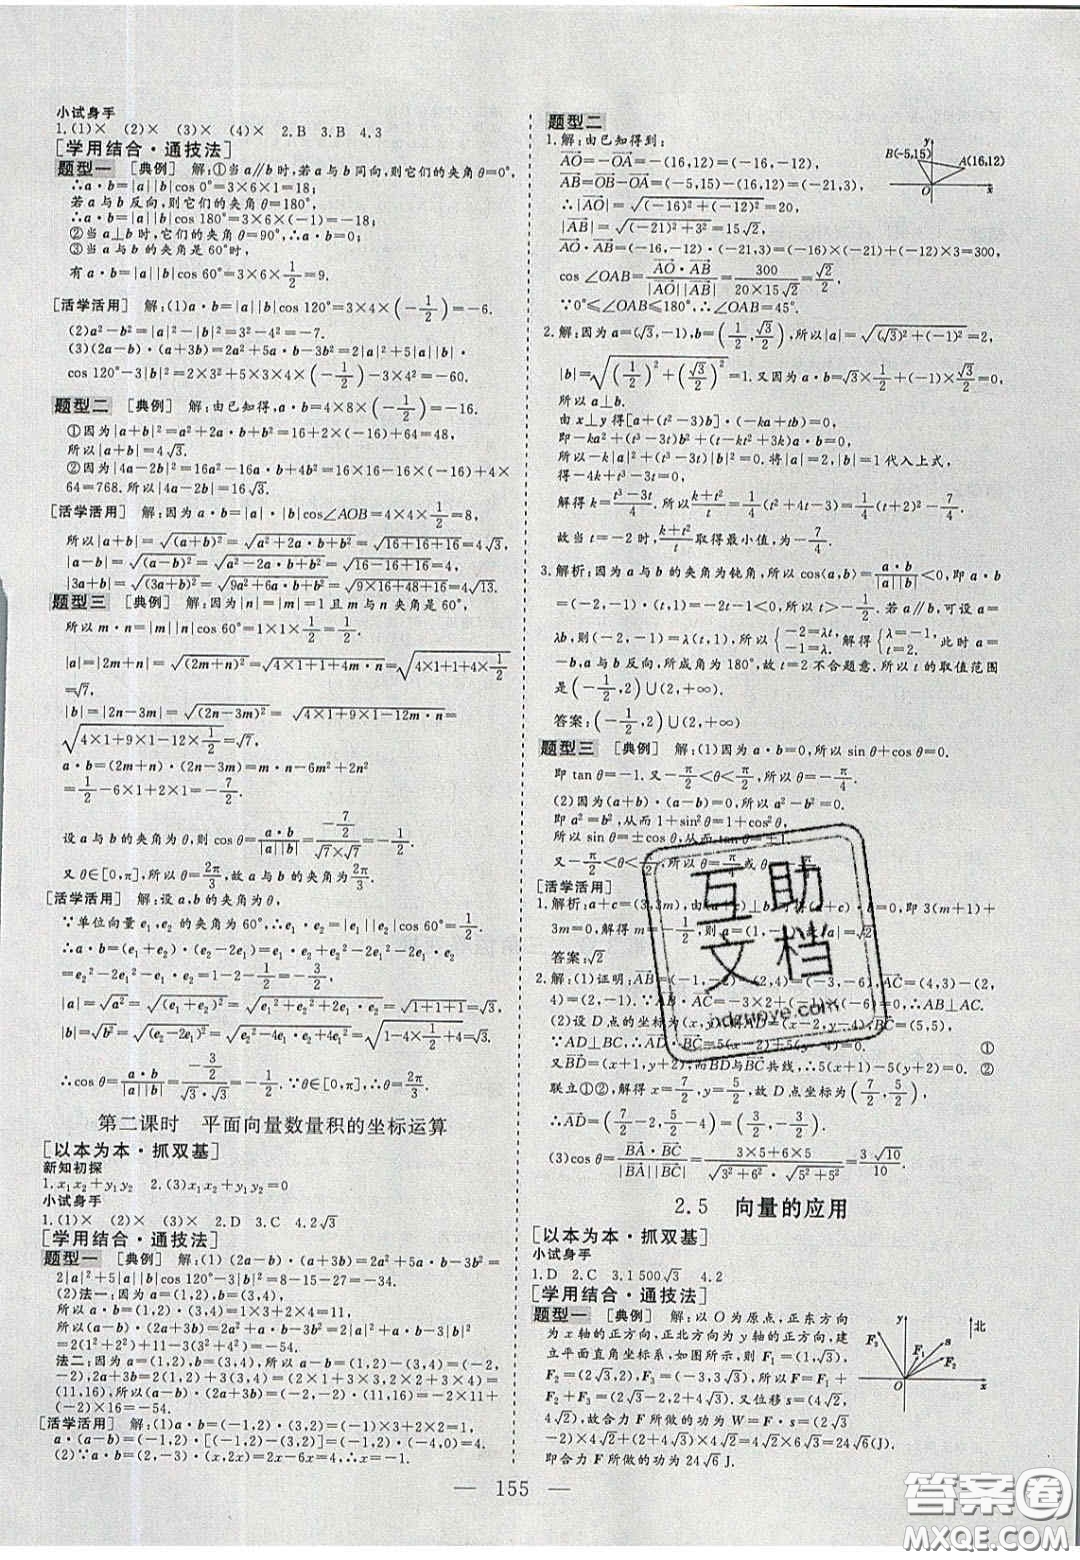 小试身手
1.(1)× (2)× (3)× (4)× 2.B 3.B 4.3
[学用结合·通技法]
题型一 [典例] 解:①当a∥b时,若a与b同向,则它们的夹角θ=0°,
∴a·b=|a||b|cos 0°=3×6×1=18;
若a与b反向,则它们的夹角θ=180°,
∴a·b=|a||b|cos 180°=3×6×(-1)=-18;
②当a⊥b时,它们的夹角θ=90°,∴a·b=0;
③当a与b的夹角是60°时,
有a·b=|a||b|cos 60°=3×6×1/2=9.
[活学活用] 解:(1)a·b=|a||b|cos 120°=3×4×(-1/2)=-6.
(2)a²-b²=|a|²-|b|²=3²-4²=-7.
(3)(2a-b)·(a+3b)=2a²+5a·b-3b²=2|a|²+5|a||b|·
cos 120°-3|b|²=2×3²+5×3×4×(-1/2)-3×4²=-60.
题型二 [典例] 解:由已知得,a·b=4×8×(-1/2)=-16.
①因为|a+b|²=a²+2a·b+b²=16+2×(-16)+64=48,
所以|a+b|=4√3.
②因为|4a-2b|²=16a²-16a·b+4b²=16×16-16×(-16)+4×
64=768.所以|4a-2b|=16√3.
[活学活用] 解:因为a·b=|a|·|b|cos∠AOB=4×4×1/2=8,
所以|a+b|=√(a+b)²=√a²+2a·b+b²=√16+16+16=4√3,
|a-b|=√(a-b)²=√a²-2a·b+b²=√16-16+16=4,
|3a+b|=√(3a+b)²=√9a²+6a·b+b²=√9×16+48+16=4√13.
题型三 [典例] 解:因为|n|=|m|=1且m与n夹角是60°,
所以m·n=|m||n|cos 60°=1×1×1/2=1/2.
|a|=|2m+n|=√(2m+n)²=√4×1+1+4m·n=√4×1+1+4×1/2
=√7,
|b|=|2n-3m|=√(2n-3m)²=√4×1+9×1-12m·n=
√4×1+9×1-12×1/2=√7,
a·b=(2m+n)·(2n-3m)=m·n-6m²+2n²
=1/2-6×1+2×1=-7/2.
设a与b的夹角为θ,则cos θ=a·b/|a||b|=-7/2/√7×√7=-1/2.
又θ∈[0,π],所以θ=2π/3,故a与b的夹角为2π/3.
[活学活用] 解:设a,b的夹角为θ,
∵单位向量e₁,e₂的夹角为60°,∴e₁·e₂=|e₁||e₂|cos60°=1/2.
=e₂²-2e₁²-e₁·e₂=1-2-1/2=-3/2,
|a|=√a²=√(e₁+e₂)²=√e₁²+e₂²+2e₁·e₂=√1+1+1=√3,
|b|=√b²=√(e₂-2e₁)²=√e₂²-4e₁·e₂+4e₁²=√1-4×1/2+4=√3.
∴cos θ=a·b/|a||b|=-3/2/√3·√3=-1/2.∵θ∈[0,π],∴θ=2π/3.
第二课时 平面向量数量积的坐标运算
[以本为本·抓双基]
新知初探
1.x₁x₂+y₁y₂ 2.(3)x₁x₂+y₁y₂=0
小试身手
1.(1)× (2)× (3)× 2.D 3.C 4.2√3
[学用结合·通技法]
题型一 [典例] 解:(1)(2a-b)·(a+3b)=2a²+5a·b-3b²=
2|a|²+5|a||b|cos 120°-3|b|²=8-15-27=-34.
(2)法一:因为a=(1,2),b=(3,4),
所以a·b=(1,2)·(3,4)=1×3+2×4=11,
所以(a-b)·(2a+3b)=2a²+a·b-3b²=2|a|²+a·b-3|b|²=
2(1²+2²)+11-3(3²+4²)=-54.
法二:因为a=(1,2),b=(3,4),所以a-b=(1,2)-(3,4)=(-2,
-2),2a+3b=2(1,2)+3(3,4)=(2×1+3×3,2×2+3×4)=
(11,16),所以(a-b)·(2a+3b)=(-2,-2)·(11,16)=-2×11+
(-2)×16=-54.
[活学活用] 解:(1)a·b=(-1,2)·(3,2)=(-1)×3+2×2=1,
a·(a-b)=(-1,2)·[(-1,2)-(3,2)]=(-1,2)·(-4,0)=4.
(2)∵a·b=(-1,2)·(3,2)=(-1)×3+2×2=1,
题型二
1.解:由已知得到:
AO=-OA=-(16,12)=(-16,-12),
AB=OB-OA=(-5,15)-(16,12)=(-21,3),
∴|AO|=√(-16)²+(-12)²=20,
|AB|=√(-21)²+3²=15√2,
AO·AB=(-16,-12)·(-21,3)=(-16)×(-21)+(-12)×3=300,
cos∠OAB=AO·AB/|AO||AB|=300/20×15√2=√2/2.
∵0°≤∠OAB≤180°.∴∠OAB=45°.
B(-5,15) A(16,12) y O x
2.解:因为a=(√3,-1),b=(1/2,√3/2),所以|a|=√(√3)²+(-1)²=2,
|b|=√(1/2)²+(√3/2)²=1.又因为a·b=√3×1/2+(-1)×√3/2=0,
所以a⊥b.
由x⊥y得[a+(t²-3)b]·(-ka+tb)=0,
即-ka²+(t³-3t)b²+(-kt²+t+3k)a·b=0.
即-k|a|²+(t³-3t)|b|²=0.将|a|=2,|b|=1代入上式,
得-4k+t³-3t=0.
解得k=t³-3t/4.所以k+t²/t=1/4(t²+4t-3)=1/4(t+2)²-7/4.
故当t=-2时,k+t²/t取得最小值,为-7/4.
3.解析:因为a与b的夹角为钝角,所以cos⟨a,b⟩=a·b/|a||b|<0,即a·b
=(-2,-1)·(t,1)=-2t-1<0,所以t>-1/2.若a∥b,可设a=
λb,所以(-2,-1)=λ(t,1),所以{-2=λt,-1=λ.解得{λ=-1,t=2.此时a=
-b,a与b反向,所成角为180°,故t=2不合题意.所以t的取值范围
是(-1/2,2)∪(2,+∞).
答案:(-1/2,2)∪(2,+∞)
题型三 [典例] 解:(1)因为a·b=0,所以sin θ+cos θ=0.
即tan θ=-1.又-π/2<θ<π/2,所以θ=-π/4.
(2)因为(a+b)·(a-b)=0.所以a²-b²=0.
即a²=b²,从而1+sin²θ=1+cos²θ,
所以sin θ=±cos θ,从而tan θ=±1,
[活学活用]
答案:√2
∵AD⊥BC,∴AD·BC=5(x-2)+5(y-4)=0. ①
又BD=(x+1,y+2)=而BD与BC共线,∴5(x+1)-5(y+2)=0. ②
联立①②,解得x=7/2,y=5/2,故D点坐标为(7/2,5/2).
∴AD=(7/2-2,5/2-4)=(3/2,-3/2).
(3)cos θ=BA·BC/|BA||BC|=3×5+6×5/√3²+6²·√5²+5²=3√10/10.
2.5 向量的应用
[以本为本·抓双基]
小试身手
1.D 2.C 3.1 500√3 4.2
[学用结合·通技法]
题型一 [典例] 解:以O为原点,正东方向
为x轴的正方向,正北方向为y轴的正方向,建
立平面直角坐标系,如图所示,则F₁=(1,√3),
F₂=(2√3,2),F₃=(-3,3√3),所以F=F₁+
F₂+F₃=(2√3-2,2+4√3).又位移s=(4√2,
4√2),故合力F所做的功为W=F·s=(2√3-2)×
4√2+(2+4√3)×4√2=4√2×6√3=24√6(J).
即合力F所做的功为24√6 J.
y F₃ F₁ s F₂ O x 北
155
互助文档
hdzuoye.com
答案圈
MXQE.COM